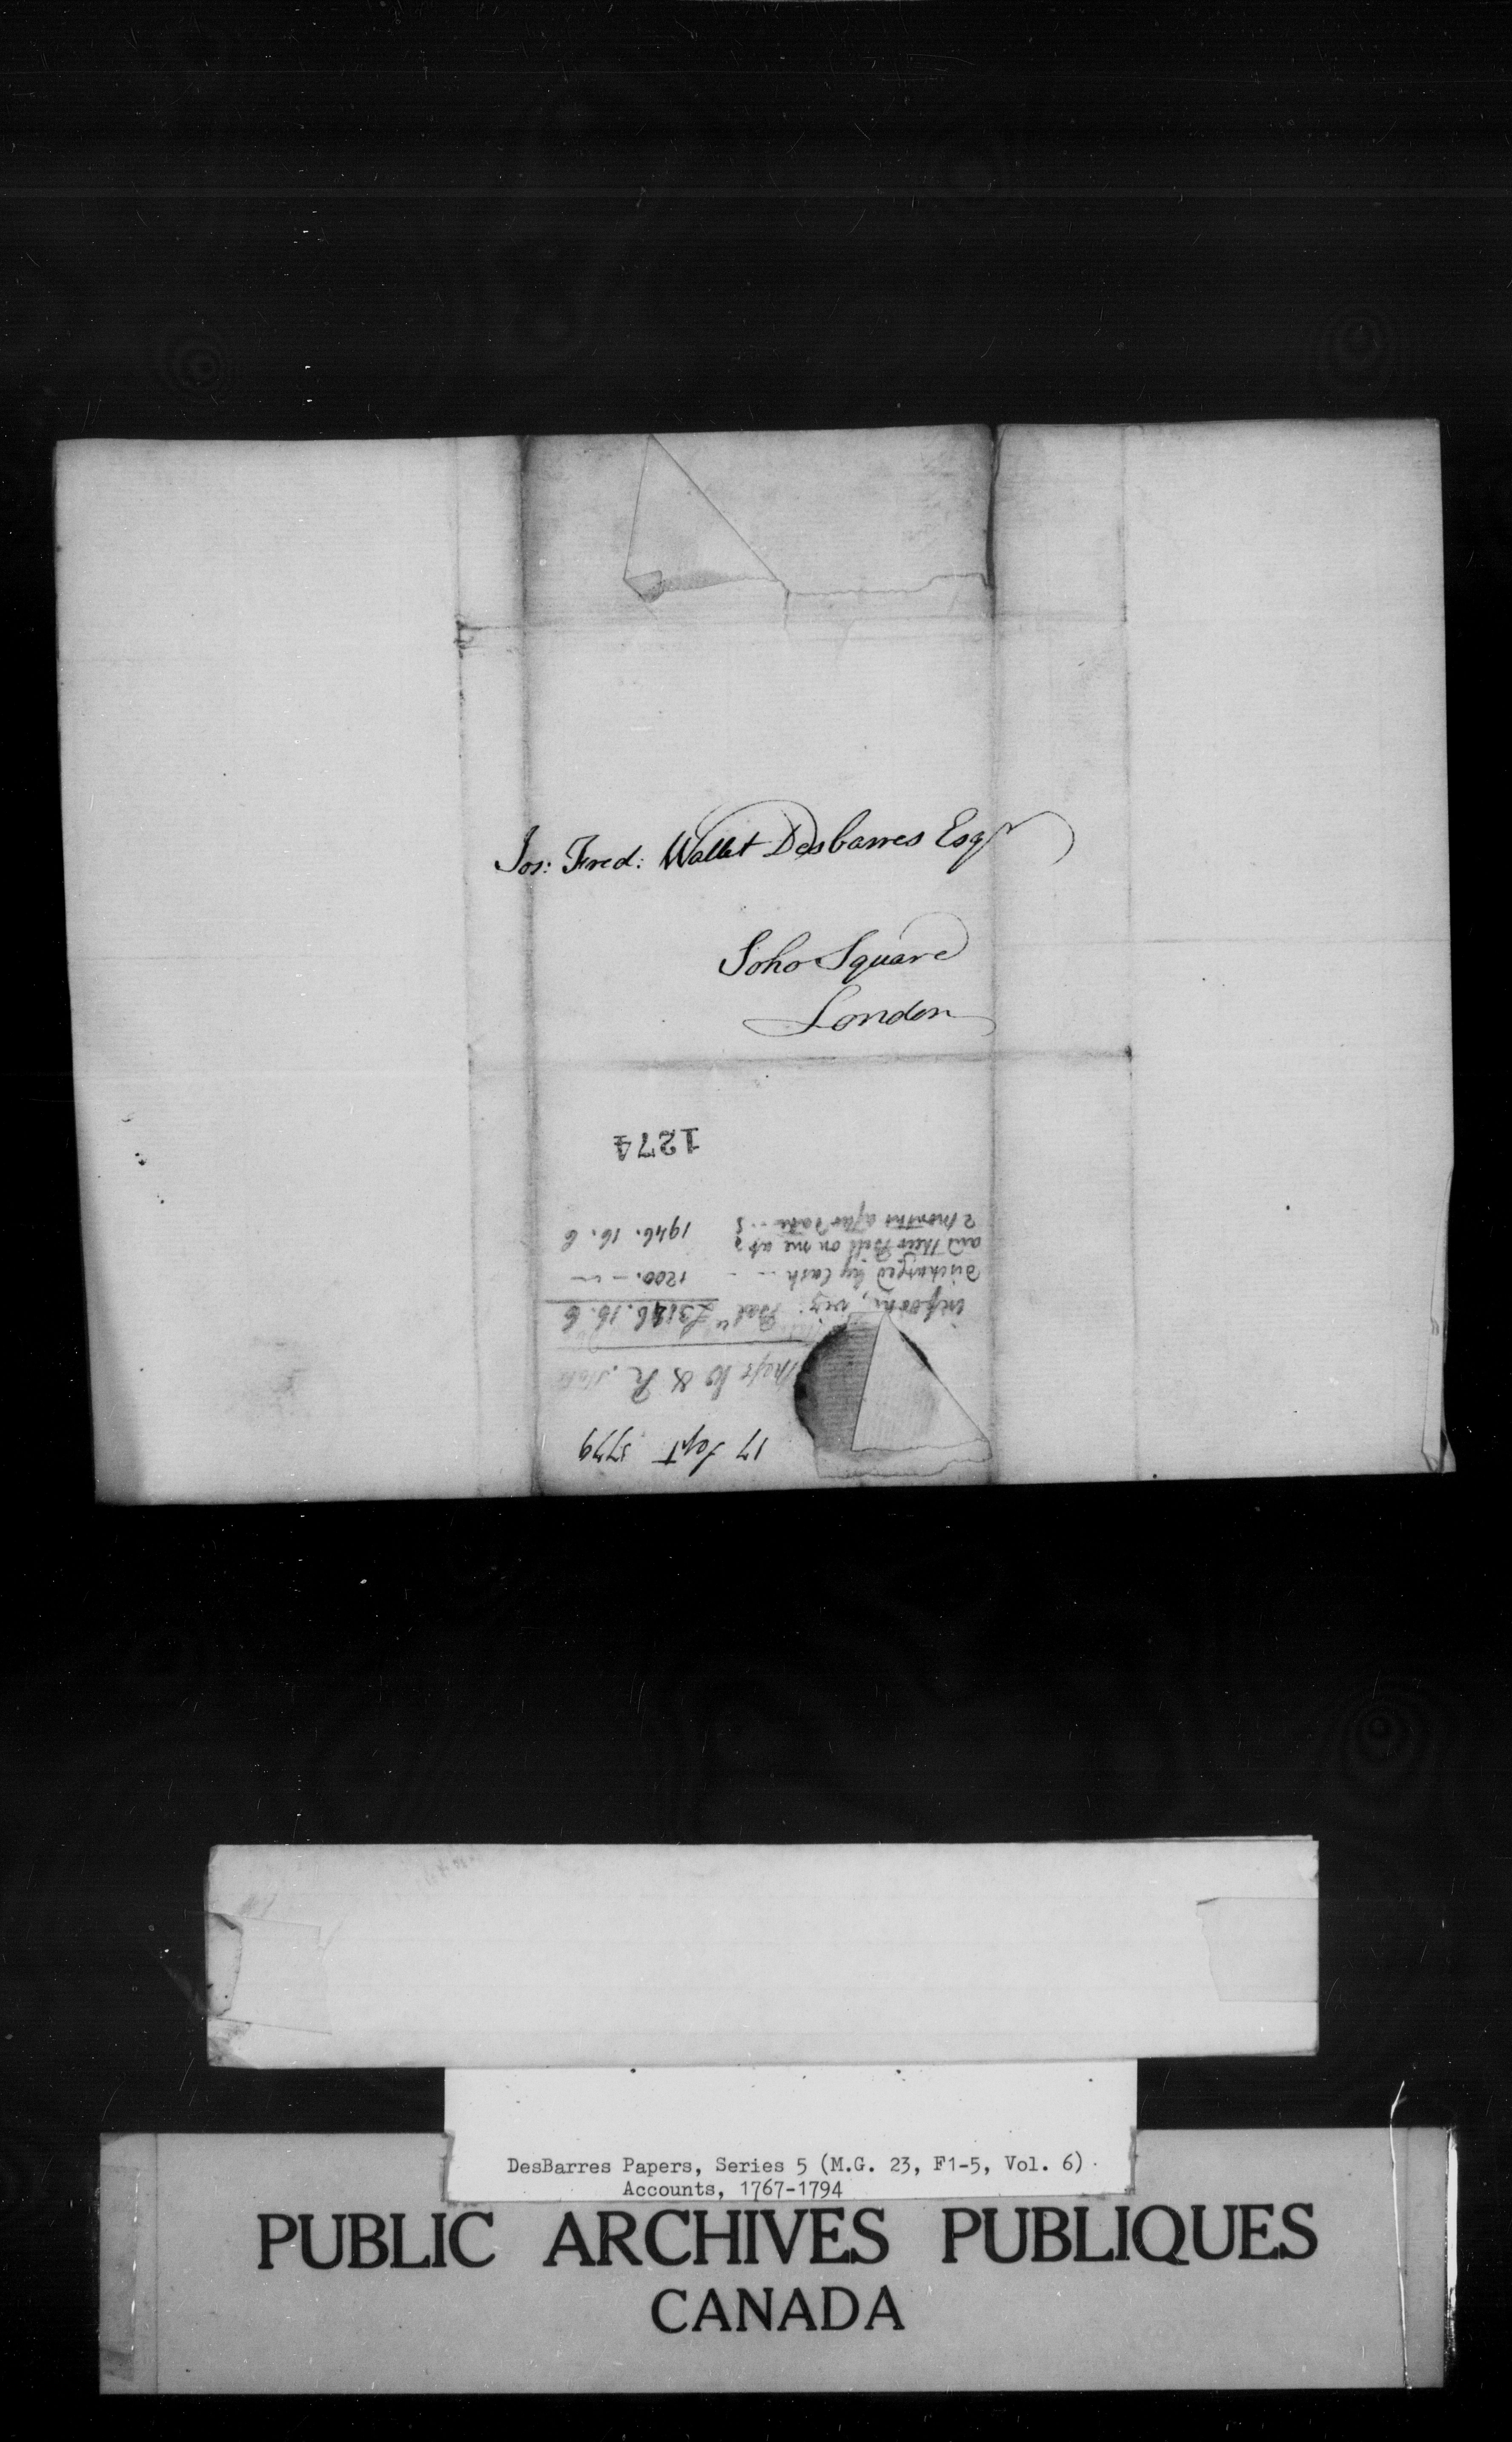 Jos: Fred: Wallet DesBarres Esqr
Soho Square
London
1274
17 Sept 1779
Messrs W & R
viz: Bal: £3146.16.6
Discharged by Cash -- - 1200. - -
and their Bill on me at
2 months after date -- 1946. 16. 6
DesBarres Papers, Series 5 (M.G. 23, F1-5, Vol. 6).
Accounts, 1767-1794
PUBLIC ARCHIVES PUBLIQUES
CANADA